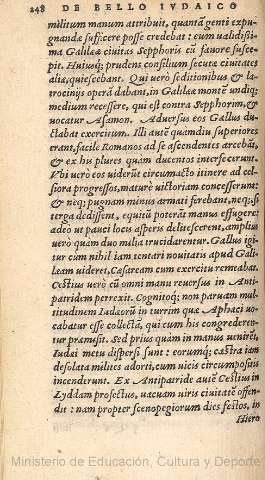 248 DE BELLO IVDAICO
militum manum attribuit, quantā genti expu-
gnandæ sufficere posse credebat: cum ualidissi-
ma Galileæ ciuitas Sepphoris cū fauore susce-
pit. Huiusq; prudens consilium secutæ ciuitates
aliæ, quiescebant. Qui uerò seditionibus & la-
trocinijs operā dabant, in Galileæ montē undiq;
medium recessere, qui est contra Sepphorim, &
uocatur Asamon. Aduersus eos Gallus du-
ctabat exercitum. Illi autē quamdiu superiores
erant, facile Romanos ad se ascendentes arcebāt,
& ex his plures quàm ducentos interfecerunt.
Vbi uerò eos uiderūt circumacto itinere ad cel-
siora progressos, maturè uictoriam concesserunt:
& neq; pugnam minus armati ferebant, neq; si
terga dedissent, equitū poterāt manus effugere:
adeo ut pauci locis asperis delitescerent, amplius
uerò quàm duo milia trucidarentur. Gallus igi-
tur cum nihil iam tentari nouitatis apud Gali-
læam uideret, Cæsaream cum exercitu remeabat.
Cestius uerò cū omni manu reuersus in Anti-
patridem perrexit. Cognitoq; non paruam mul-
titudinem Iudæorū in turrim quæ Aphaci uo-
cabatur esse collectā, qui cum his congrederen-
tur præmisit. Sed prius quàm in manus uenirēt,
Iudæi metu dispersi sunt: eorumq; castra iam
desolata milites adorti, cum uicis circumpositis
incenderunt. Ex Antipatride autē Cestius in
Lyddam profectus, uacuam uiris ciuitatē offen-
dit: nam propter scenopegiorum dies festos, in
Hiero
Ministerio de Educación, Cultura y Deporte